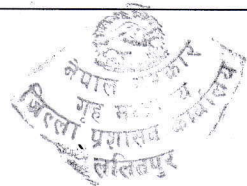 नेपाल सरकार
गृह
जिल्ला प्रशासन कार्यालय
ललितपुर